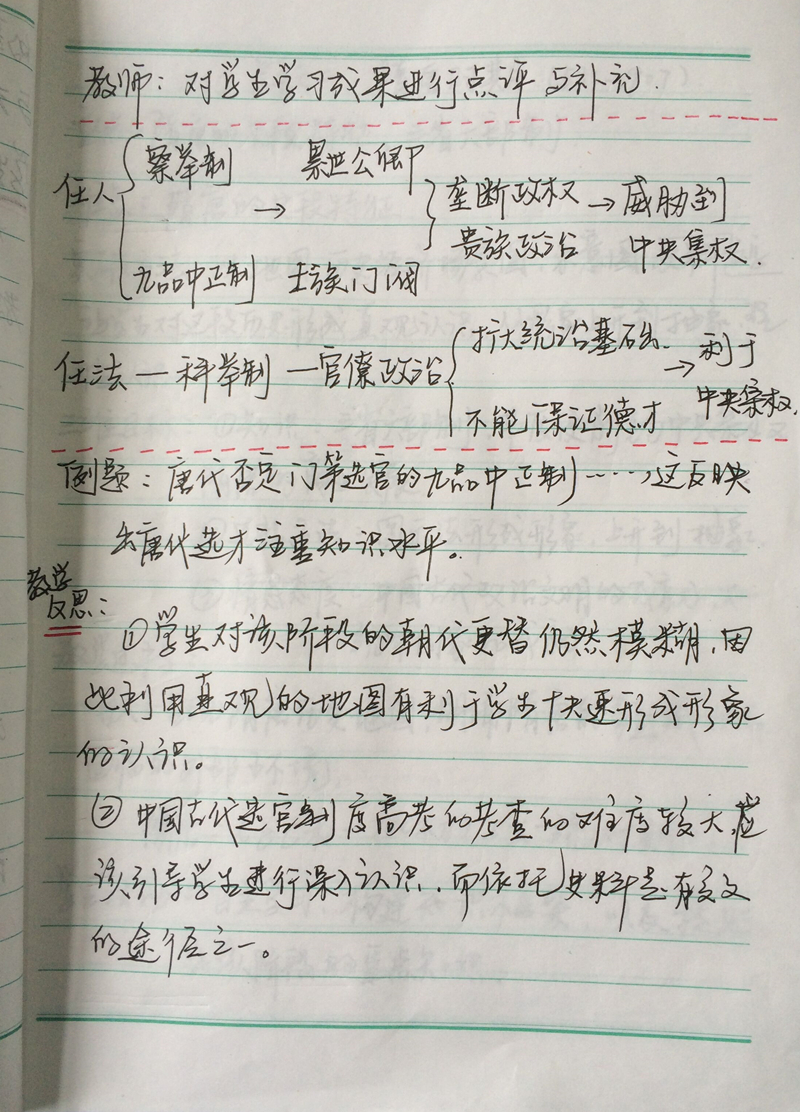 教师：对学生学习成果进行点评与补充.
察举制 累世公卿
任人 → 垄断政权 → 威胁到
贵族政治 中央集权.
九品中正制 士族门阀
扩大统治基础
任法 — 科举制 — 官僚政治 → 利于
中央集权.
不能保证德才
例题：唐代否定门第选官的九品中正制……,这反映
出唐代选才注重知识水平。
教学
反思：
①学生对该阶段的朝代更替仍然模糊,因
此利用直观的地图有利于学生快速形成形象
的认识。
②中国古代选官制度高考的考查的难度较大,应
该引导学生进行深入认识.而依托史料是有效
的途径之一。